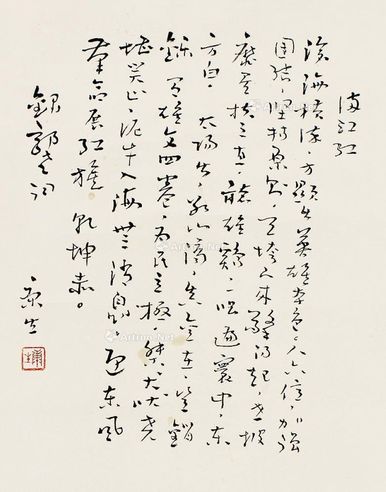 满江红
沧海横流，方顯出英雄本色。人六億，加強
團結，坚持原則。天垮下来擎得起，世披
靡矣扶之直。聽雄鷄一唱遍寰中，東
方白。太陽出，冰山滴，真金在，豈銷
鑠。有雄文四卷，为民立極。桀犬吠堯
堪笑止，泥牛入海無消息。迎东風
革命展红旗，乾坤赤。
録郭老词
康生
康生
Artron.Net